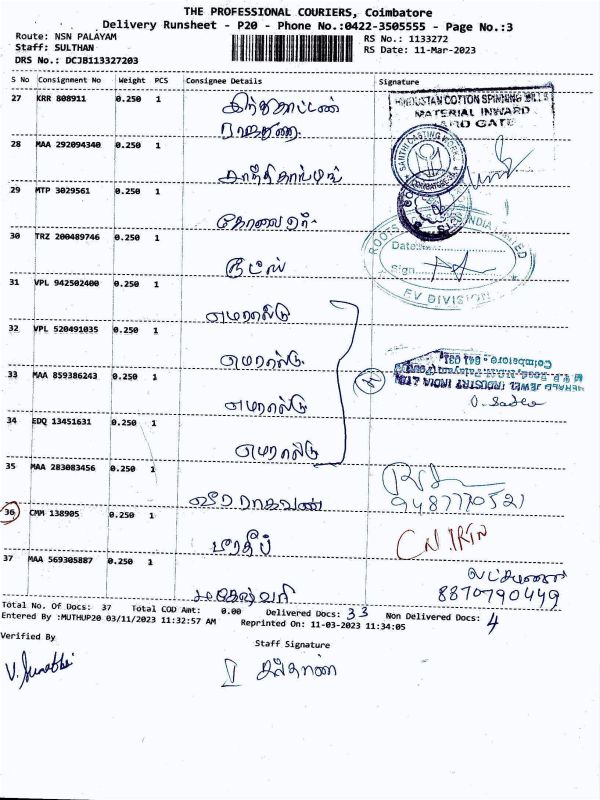 THE PROFESSIONAL COURIERS, Coimbatore
Delivery Runsheet - P20 - Phone No.:0422-3505555 - Page No.:3
Route: NSN PALAYAM
RS No.: 1133272
Staff: SULTHAN
RS Date: 11-Mar-2023
DRS No.: DCJB113327203
S No Consignment No Weight PCS Consignee Details Signature
27 KRR 808911 0.250 1
HINDUSTAN COTTON SPINNING MILLS
MATERIAL INWARD
GATE
28 MAA 292094340 0.250 1
SANTHI CASTING WORKS
COIMBATORE
29 MTP 3029561 0.250 1 கோவை
30 TRZ 200489746 0.250 1 ரூட்ஸ்
ROOTS INDIA LIMITED
Date:
Sign
EV DIVISION
31 VPL 942502400 0.250 1 எமரால்டு
32 VPL 520491035 0.250 1 எமரால்டு
33 MAA 859386243 0.250 1 எமரால்டு
4
EMERALD JEWEL INDUSTRY INDIA LTD
Coimbatore - 641 031
34 EDQ 13451631 0.250 1 எமரால்டு
35 MAA 283083456 0.250 1 வீரராகவன்
9487770521
36 CMM 138905 0.250 1 பிரதீப்
37 MAA 569305887 0.250 1 மகேஷ்வரி
8870790449
Total No. Of Docs: 37 Total COD Amt: 0.00 Delivered Docs: 33 Non Delivered Docs: 4
Entered By :MUTHUP20 03/11/2023 11:32:57 AM Reprinted On: 11-03-2023 11:34:05
Verified By
Staff Signature